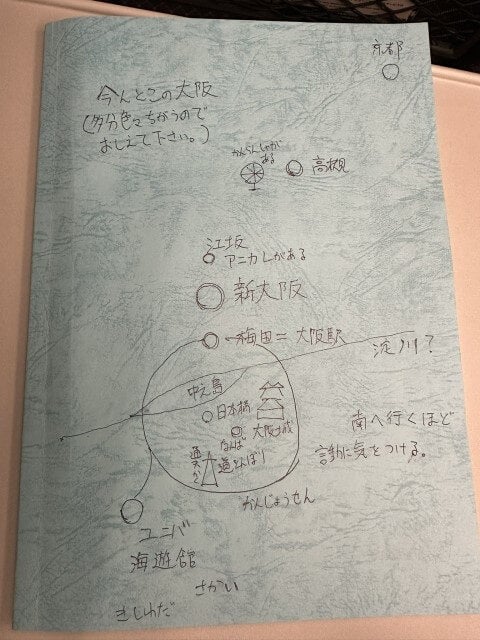 京都
今んとこの大阪
(多分色々ちがうので
おしえて下さい。)
かんらんしゃが
ある
高槻
江坂
アニカレがある
新大阪
梅田=大阪駅
淀川?
中之島
日本橋
大阪城
なんば
道とんぼり
通天かく
南へ行くほど
言動に気をつける。
かんじょうせん
ユニバ
海遊館
さかい
きしわだ